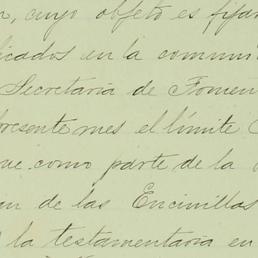 n, cuyo objeto es fijar
licados en la comuni
Secretaría de Fomen
presente mes el límite
que como parte de la
an de las Encinillas
la testamentaria en